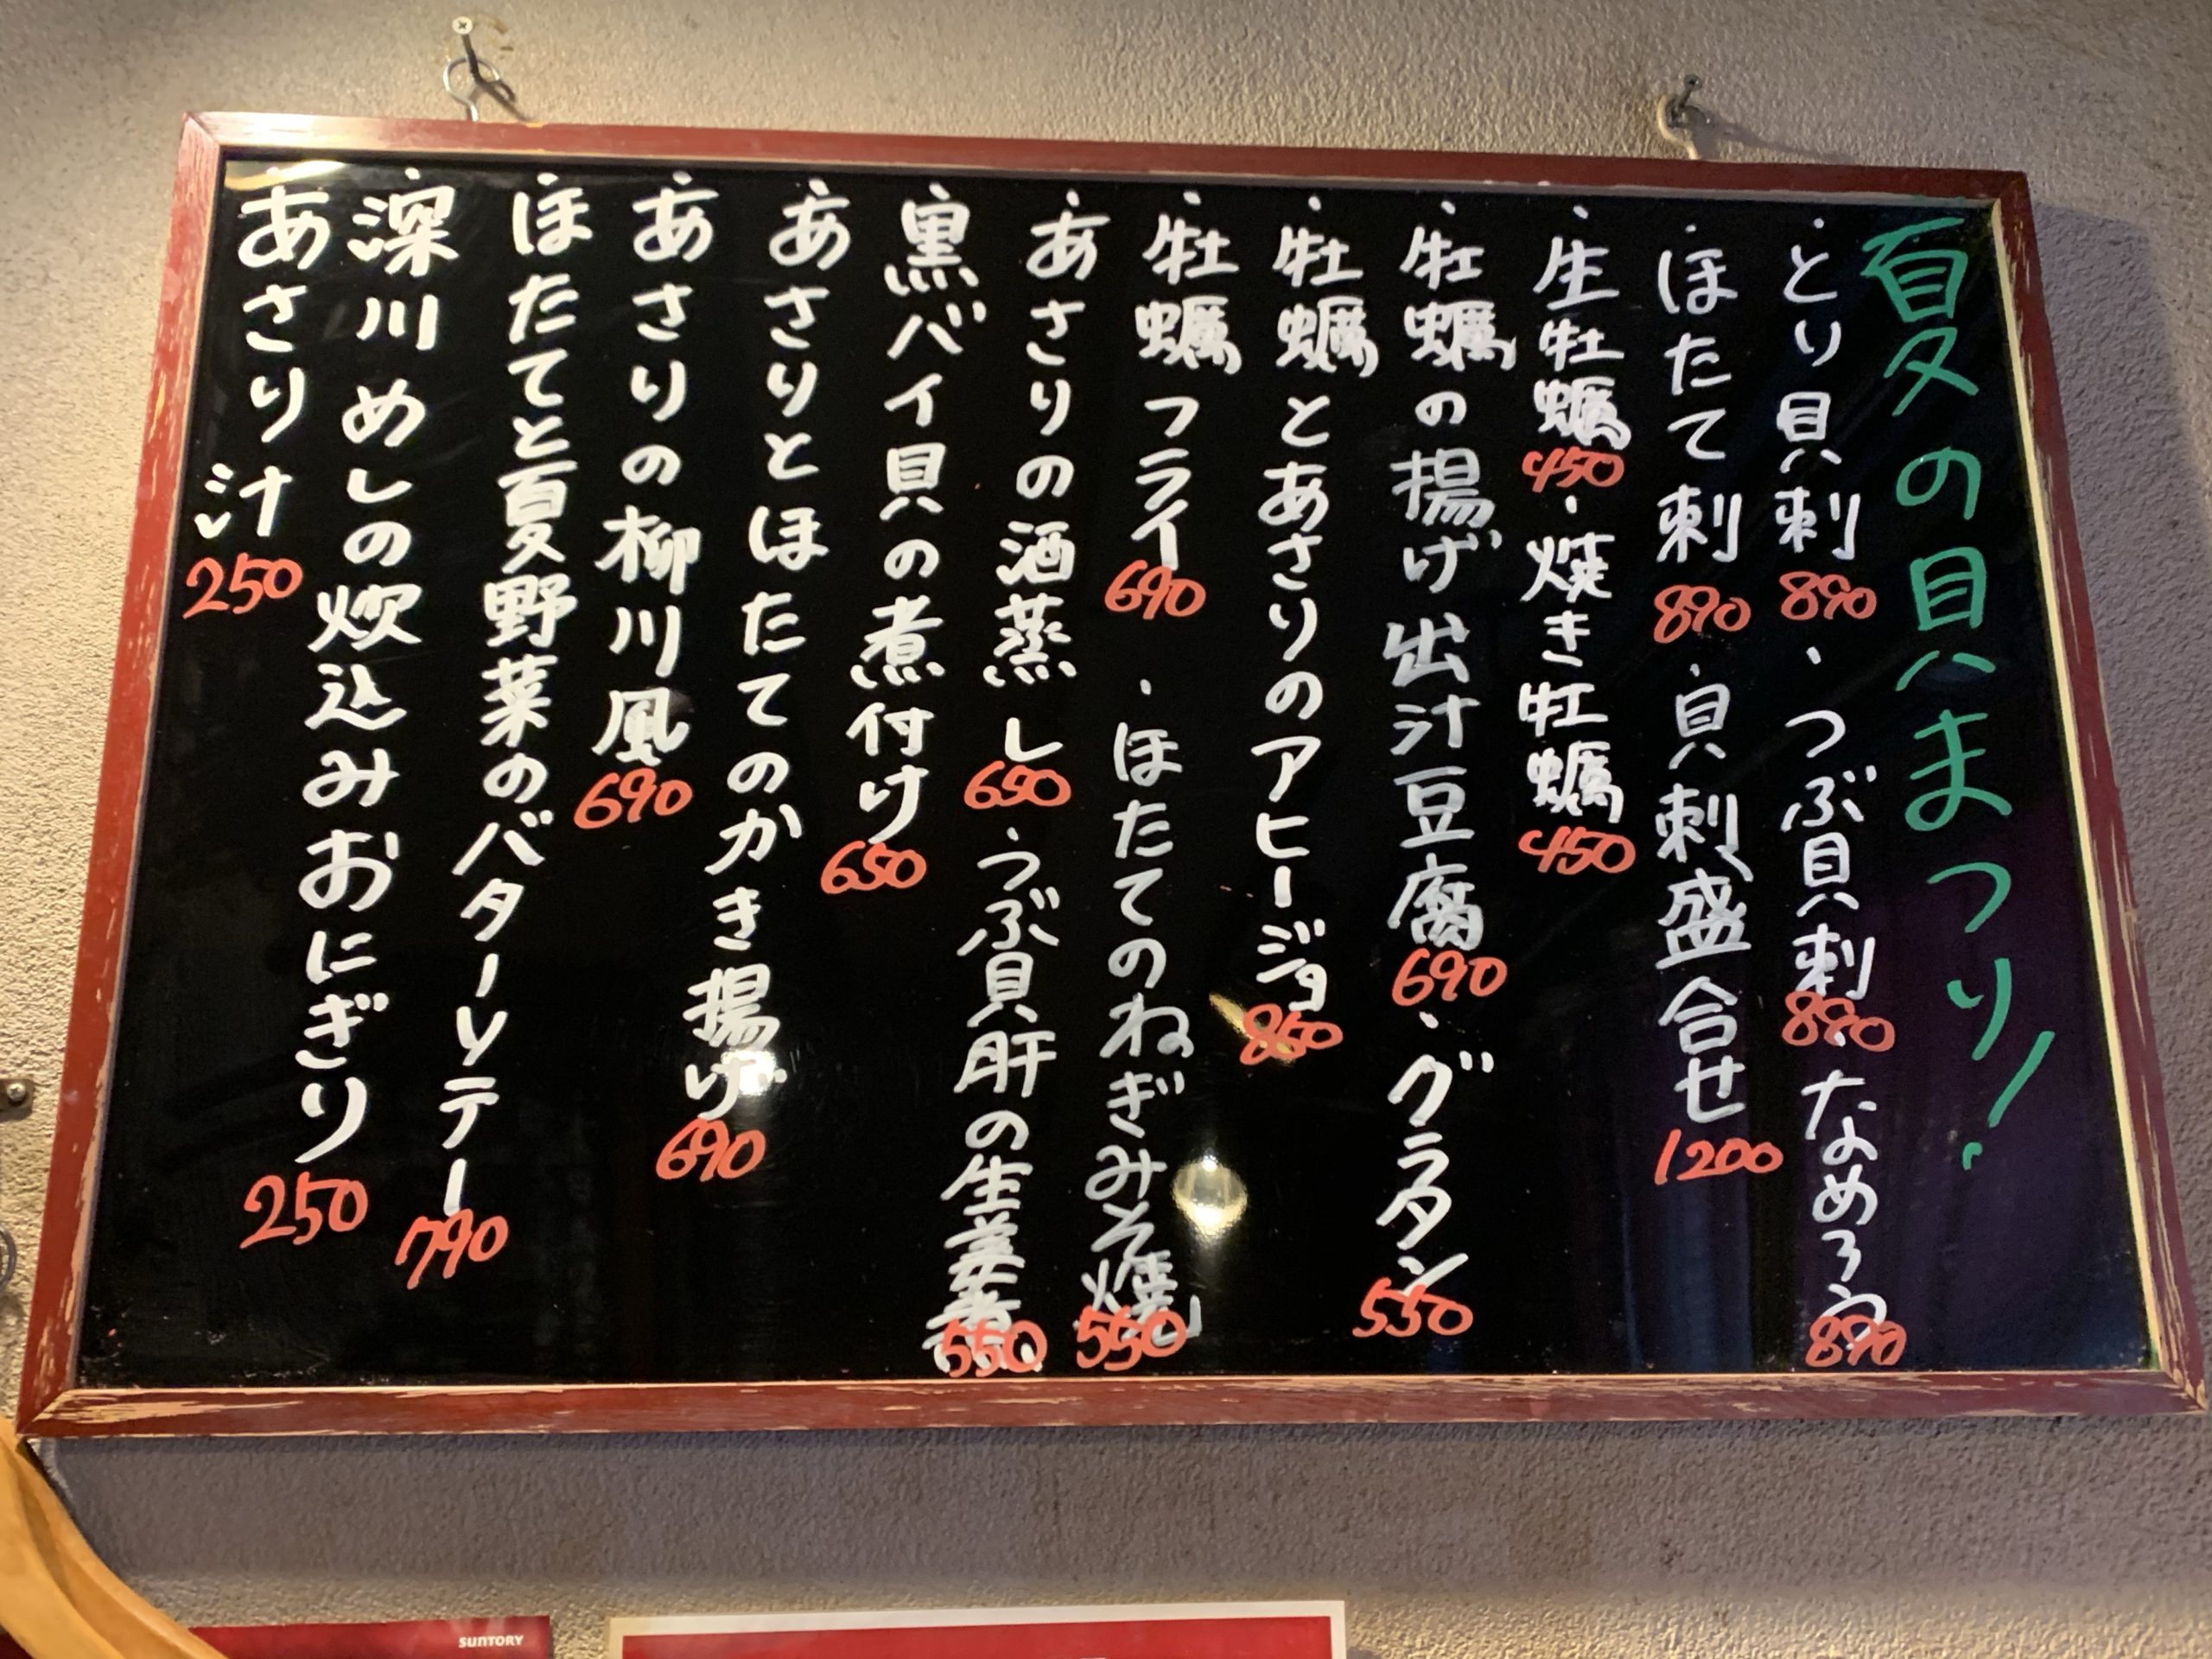 夏の貝まつり！
・とり貝刺 890 ・つぶ貝刺 890 ・なめろう 890
・ほたて刺 890 ・貝刺盛合せ 1200
・生牡蠣 450 ・焼き牡蠣 450
・牡蠣の揚げ出汁豆腐 690 ・グラタン 550
・牡蠣とあさりのアヒージョ 850
・牡蠣フライ 690 ・ほたてのねぎみそ焼 550
・あさりの酒蒸し 650 ・つぶ貝肝の生姜煮 550
・黒バイ貝の煮付け 650
・あさりとほたてのかき揚げ 690
・あさりの柳川風 690
・ほたてと夏野菜のバターソテー 790
・深川めしの炊込みおにぎり 250
・あさり汁 250
SUNTORY